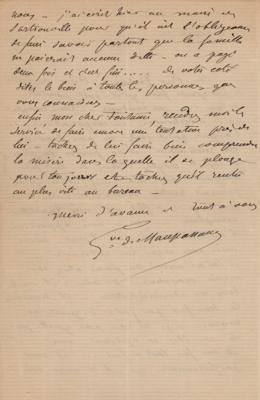 nous – j'ai écrit hier au maire de
Sartrouville pour qu'il ait l'obligeance
de faire savoir partout que la famille
ne paierait aucune dette – on a payé
deux fois et c'est fini.... de votre côté
dites le bien à toutes les personnes que
vous connaissez –
enfin mon cher Fontaine, rendez moi le
service de faire encore une tentative près de
lui – tâchez de lui faire bien comprendre
la misère dans laquelle il se plonge
pour toujours et tâchez qu'il rentre
au plus vite au bureau –
merci d'avance et tout à vous
Guy de Maupassant